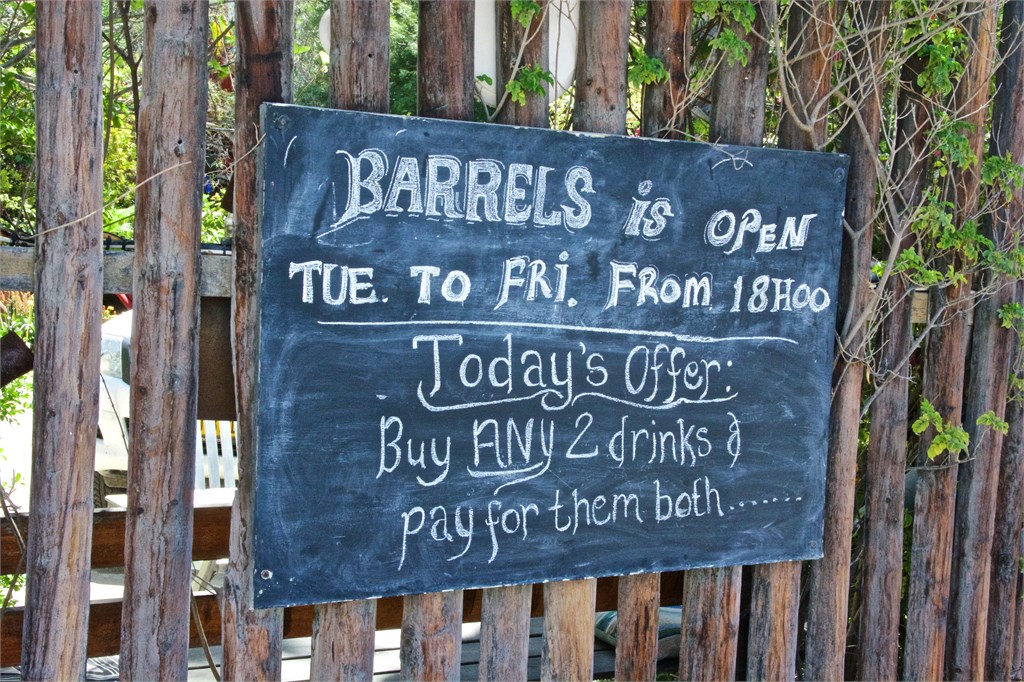 BARRELS is OPEN
TUE. TO FRi. FROM 18H00
Today's Offer:
Buy ANY 2 drinks &
pay for them both.......